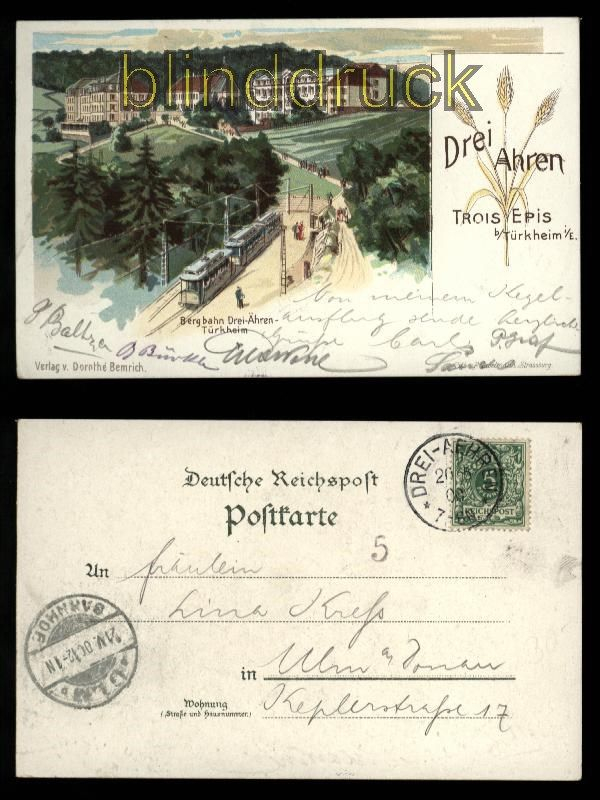 blinddruck
Drei
Ähren
TROIS EPIS
b/Türkheim i/E.
Bergbahn Drei-Ähren-
Türkheim
Von meinem Kegel-
ausflug sende herzliche
Grüße Carl
P. Graf
Verlag v. Dorothé Bemrich.
Strassburg
Deutsche Reichspost
Postkarte
DREI-AEHRE
REICHSPOST
5
5
An Fräulein
Lina Kreß
in Ulm a/Donau
Wohnung
(Straße und Hausnummer.)
Keplerstraße 17
BAHNHOF
ULM